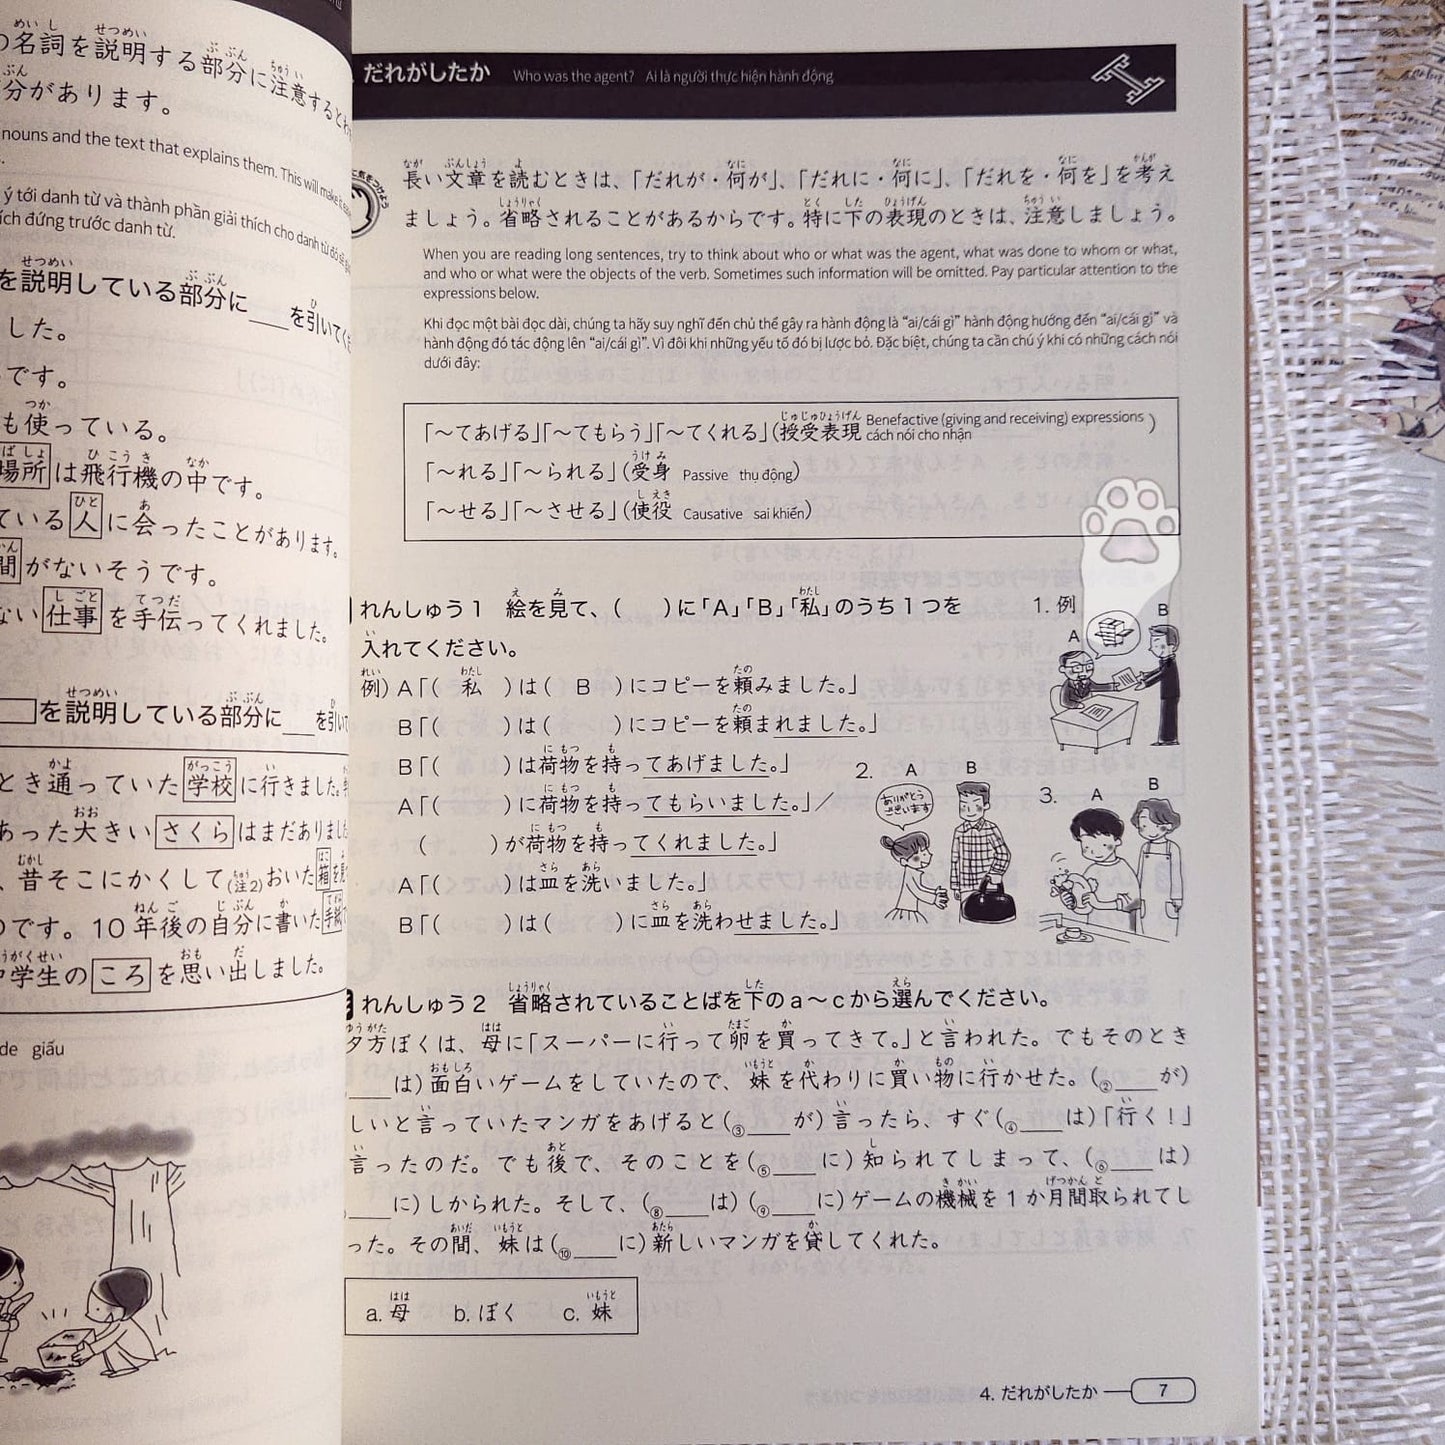 の名詞を説明する部分に注意すると
分があります。
nouns and the text that explains them. This will make it
ý tới danh từ và thành phần giải thích cho danh từ đó sẽ
ích đứng trước danh từ.
を説明している部分に___を引いて
した。
です。
も使っている。
場所は飛行機の中です。
ている人に会ったことがあります。
間がないそうです。
ない仕事を手伝ってくれました。
を説明している部分に___を引い
とき通っていた学校に行きました。
あった大きいさくらはまだありまし
、昔そこにかくして(注2)おいた箱を
のです。10年後の自分に書いた手紙
中学生のころを思い出しました。
de giấu
だれがしたか Who was the agent? Ai là người thực hiện hành động
長い文章を読むときは、「だれが・何が」、「だれに・何に」、「だれを・何を」を考え
ましょう。省略されることがあるからです。特に下の表現のときは、注意しましょう。
When you are reading long sentences, try to think about who or what was the agent, what was done to whom or what,
and who or what were the objects of the verb. Sometimes such information will be omitted. Pay particular attention to the
expressions below.
Khi đọc một bài đọc dài, chúng ta hãy suy nghĩ đến chủ thể gây ra hành động là “ai/cái gì” hành động hướng đến “ai/cái gì” và
hành động đó tác động lên “ai/cái gì”. Vì đôi khi những yếu tố đó bị lược bỏ. Đặc biệt, chúng ta cần chú ý khi có những cách nói
dưới đây:
「～てあげる」「～てもらう」「～てくれる」(授受表現 Benefactive (giving and receiving) expressions cách nói cho nhận)
「～れる」「～られる」(受身 Passive thụ động)
「～せる」「～させる」(使役 Causative sai khiến)
れんしゅう1 絵を見て、( )に「A」「B」「私」のうち1つを
入れてください。
例) A「( 私 )は( B )にコピーを頼みました。」
B「( )は( )にコピーを頼まれました。」
B「( )は荷物を持ってあげました。」
A「( )に荷物を持ってもらいました。」／
( )が荷物を持ってくれました。」
A「( )は皿を洗いました。」
B「( )は( )に皿を洗わせました。」
1. 例
A
B
2.
A
B
ありがとう
ございます
3.
A
B
れんしゅう2 省略されていることばを下のa～cから選んでください。
夕方ぼくは、母に「スーパーに行って卵を買ってきて。」と言われた。でもそのとき
___は)面白いゲームをしていたので、妹を代わりに買い物に行かせた。(②___が)
しいと言っていたマンガをあげると(③___が)言ったら、すぐ(④___は)「行く！」
言ったのだ。でも後で、そのことを(⑤___に)知られてしまって、(⑥___は)
___に)しかられた。そして、(⑧___は)(⑨___に)ゲームの機械を1か月間取られてし
った。その間、妹は(⑩___に)新しいマンガを貸してくれた。
a. 母 b. ぼく c. 妹
4. だれがしたか 7